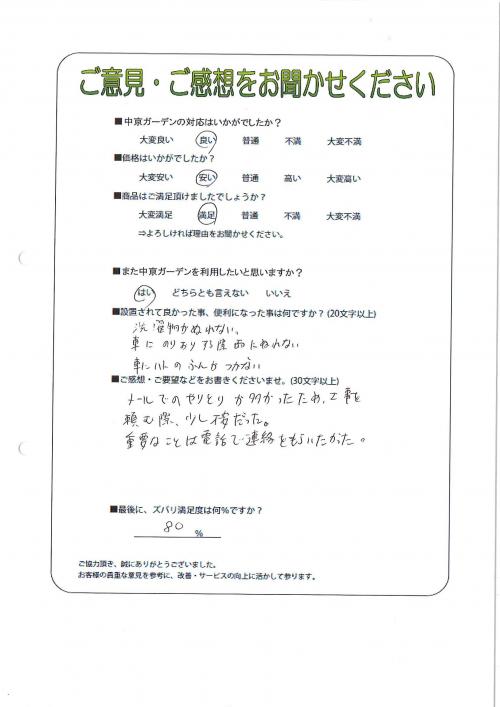 ご意見・ご感想をお聞かせください
■中京ガーデンの対応はいかがでしたか?
大変良い 良い 普通 不満 大変不満
■価格はいかがでしたか?
大変安い 安い 普通 高い 大変高い
■商品はご満足頂けましたでしょうか?
大変満足 満足 普通 不満 大変不満
⇒よろしければ理由をお聞かせください。
■また中京ガーデンを利用したいと思いますか?
はい どちらとも言えない いいえ
■設置されて良かった事、便利になった事は何ですか?(20文字以上)
洗濯物がぬれない。
車にのりおりする際雨にぬれない
車にハトのふんがつかない
■ご感想・ご要望などをお書きくださいませ。(30文字以上)
メールでのやりとりが多かったため、工事を
頼む際、少し不安だった。
重要なことは電話で連絡をもらいたかった。
■最後に、ズバリ満足度は何%ですか?
80 %
ご協力頂き、誠にありがとうございました。
お客様の貴重な意見を参考に、改善・サービスの向上に活かして参ります。